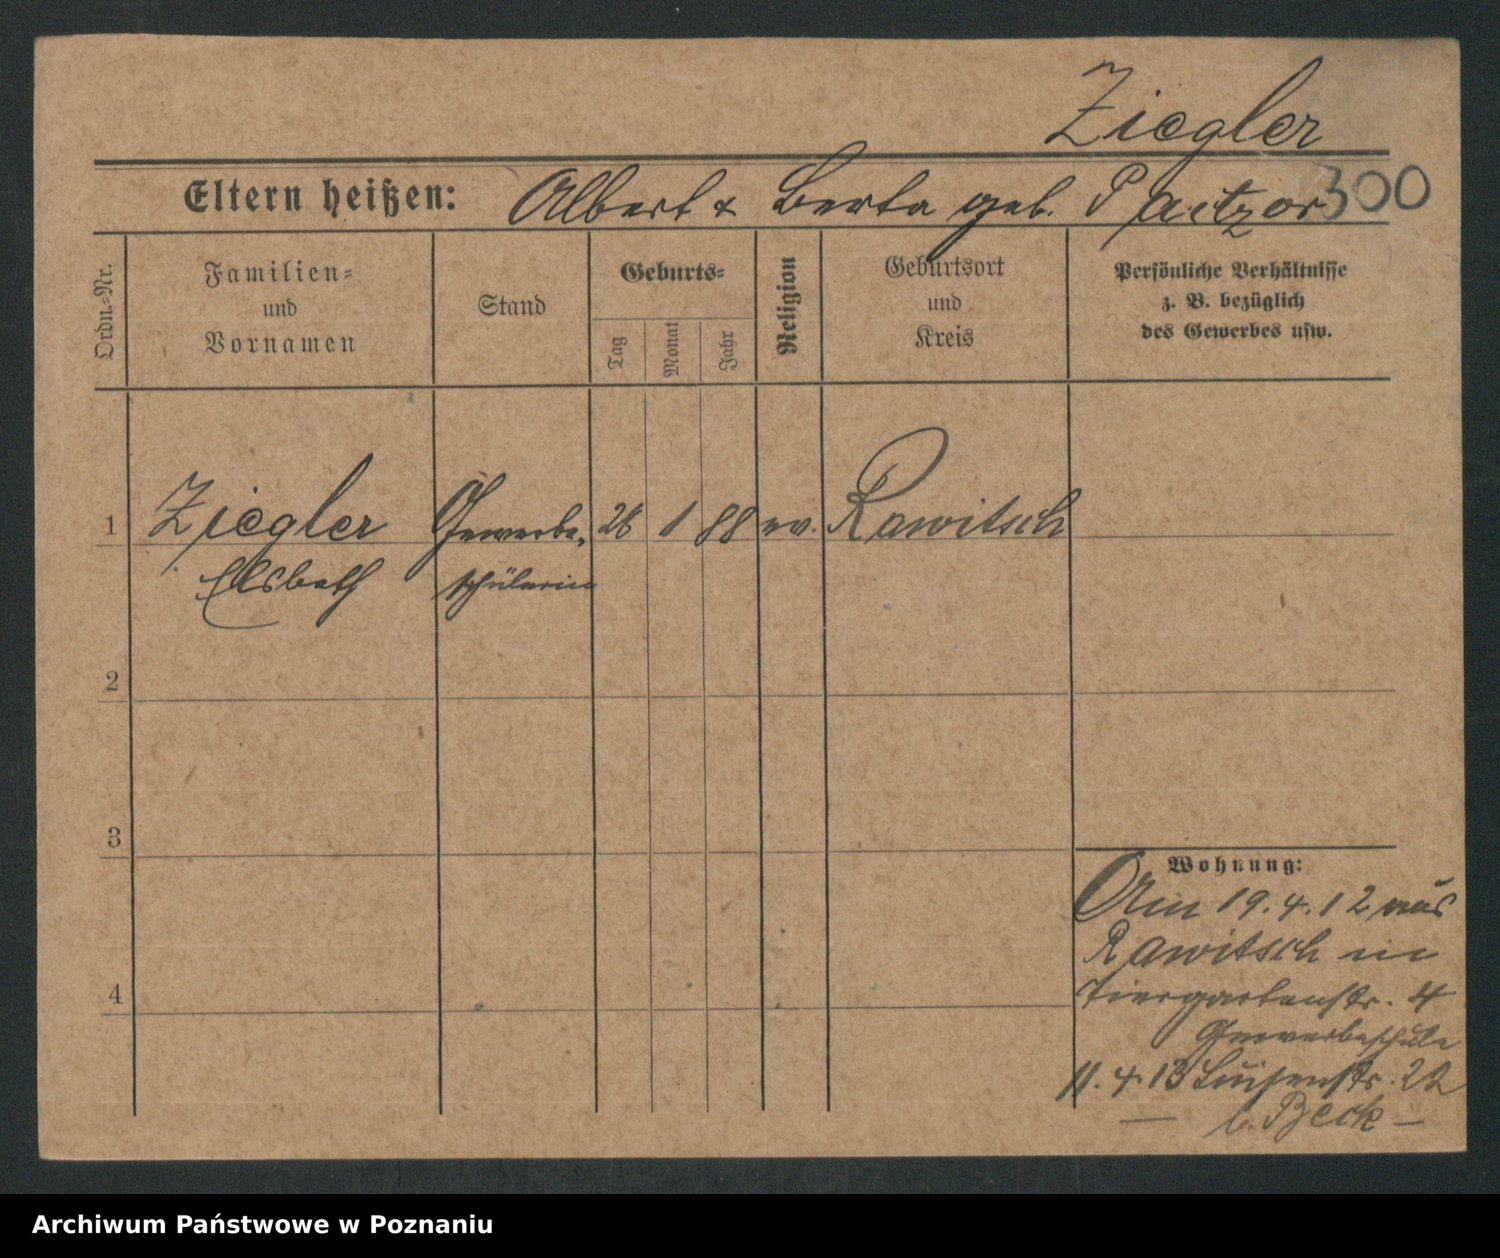 Ziegler
300
Eltern heißen: Albert & Berta geb. Paitzor
Ordn.-Nr.
Familien-
und
Vornamen
Stand
Geburts-
Tag
Monat
Jahr
Religion
Geburtsort
und
Kreis
Persönliche Verhältnisse
z. B. bezüglich
des Gewerbes usw.
1 Ziegler Gewerbe- 26 1 88 ev. Rawitsch
Elsbeth schülerin
2
3
4
Wohnung:
Am 19.4.12 aus
Rawitsch in
Tiergartenstr. 4
Gewerbeschule
11.4.13 Luisenstr. 22
— b. Beck —
Archiwum Państwowe w Poznaniu